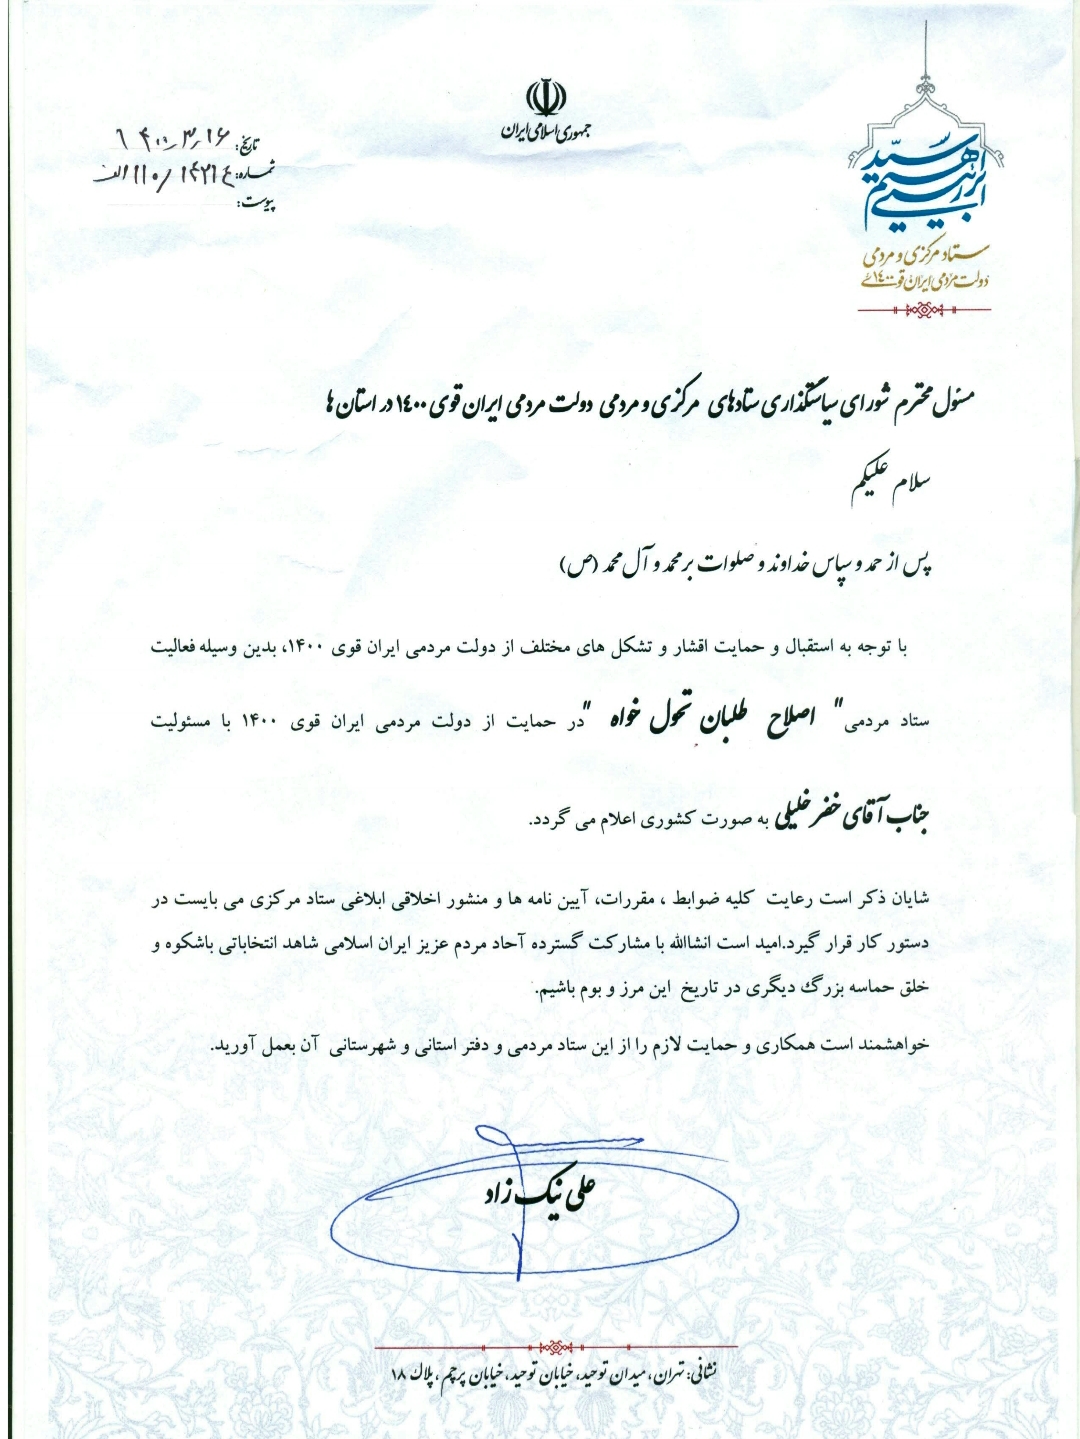 جمهوری اسلامی ایران
تاریخ: ۱۴۰۰٫۳٫۱۶
شماره:
پیوست:
سید ابراهیم رئیسی
ستاد مرکزی و مردمی
دولت مردمی ایران قوی ۱۴۰۰
مسئول محترم شورای سیاستگذاری ستادهای مرکزی و مردمی دولت مردمی ایران قوی ۱۴۰۰ در استان ها
سلام علیکم
پس از حمد و سپاس خداوند و صلوات بر محمد و آل محمد (ص)
با توجه به استقبال و حمایت اقشار و تشکل های مختلف از دولت مردمی ایران قوی ۱۴۰۰، بدین وسیله فعالیت
ستاد مردمی" اصلاح طلبان تحول خواه "در حمایت از دولت مردمی ایران قوی ۱۴۰۰ با مسئولیت
جناب آقای خضر خلیلی به صورت کشوری اعلام می گردد.
شایان ذکر است رعایت کلیه ضوابط ، مقررات، آیین نامه ها و منشور اخلاقی ابلاغی ستاد مرکزی می بایست در
دستور کار قرار گیرد.امید است انشاالله با مشارکت گسترده آحاد مردم عزیز ایران اسلامی شاهد انتخاباتی باشکوه و
خلق حماسه بزرگ دیگری در تاریخ این مرز و بوم باشیم.
خواهشمند است همکاری و حمایت لازم را از این ستاد مردمی و دفتر استانی و شهرستانی آن بعمل آورید.
علی نیک زاد
نشانی: تهران، میدان توحید، خیابان توحید، خیابان پرچم ، پلاک ۱۸